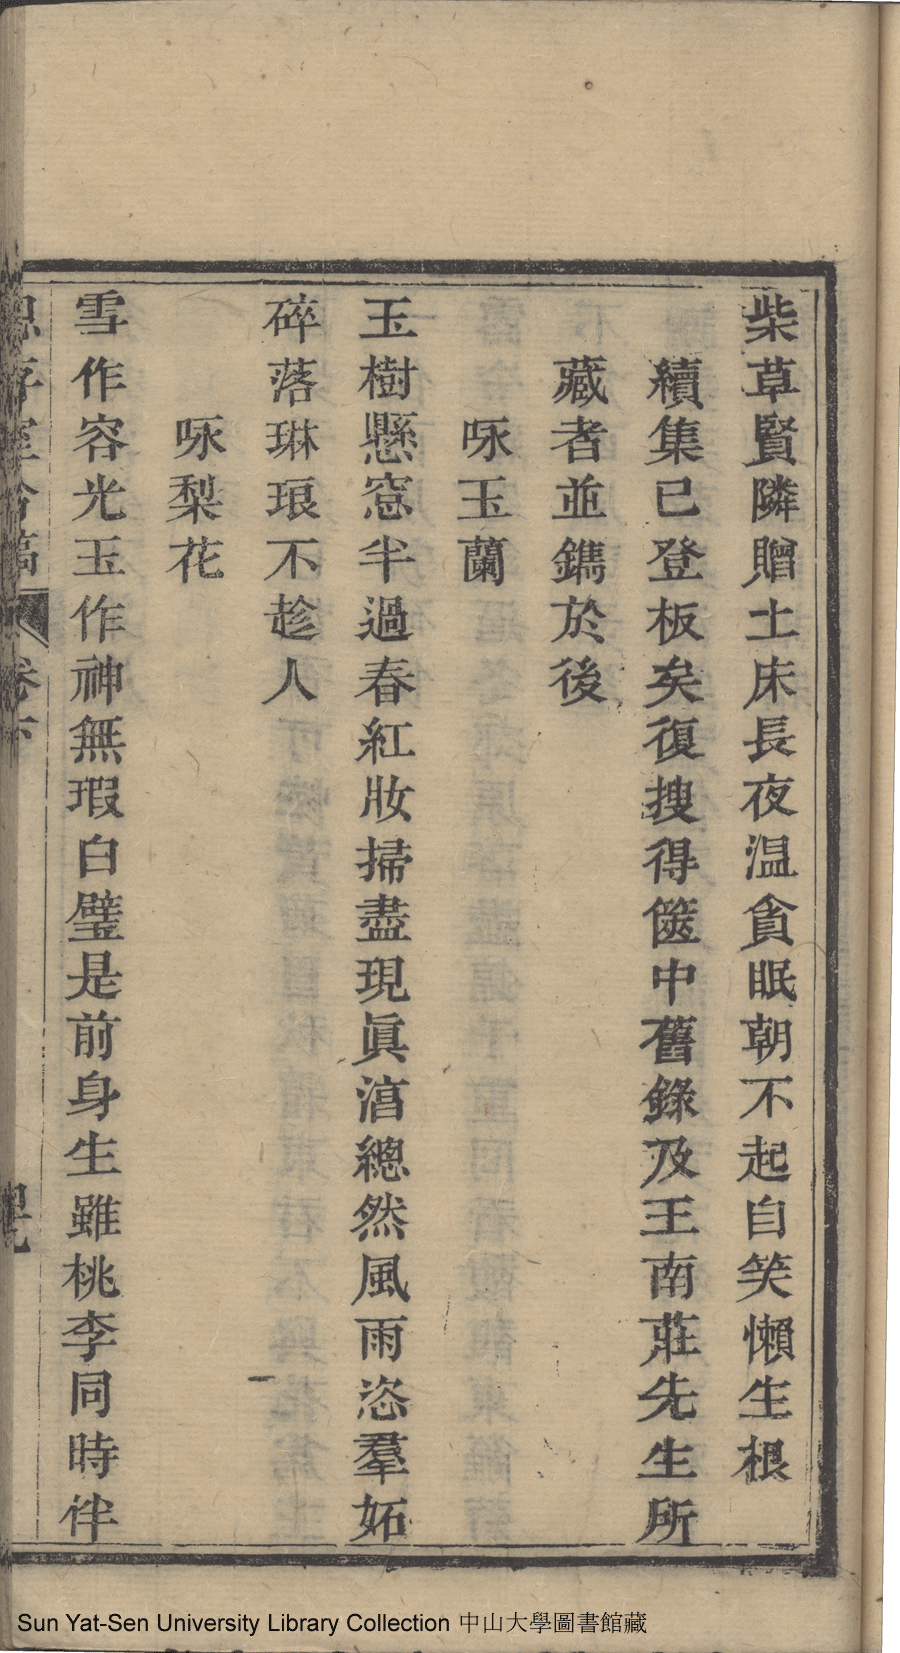 柴草賢隣贈土床長夜温貪眠朝不起自笑懶生根
續集已登板矣復搜得篋中舊錄及王南莊先生所
藏者並鐫於後
咏玉蘭
玉樹懸窓半過春紅妝掃盡現眞淳總然風雨恣羣妬
碎落琳琅不趁人
咏梨花
雪作容光玉作神無瑕白璧是前身生雖桃李同時伴
卷下
Sun Yat-Sen University Library Collection 中山大學圖書館藏